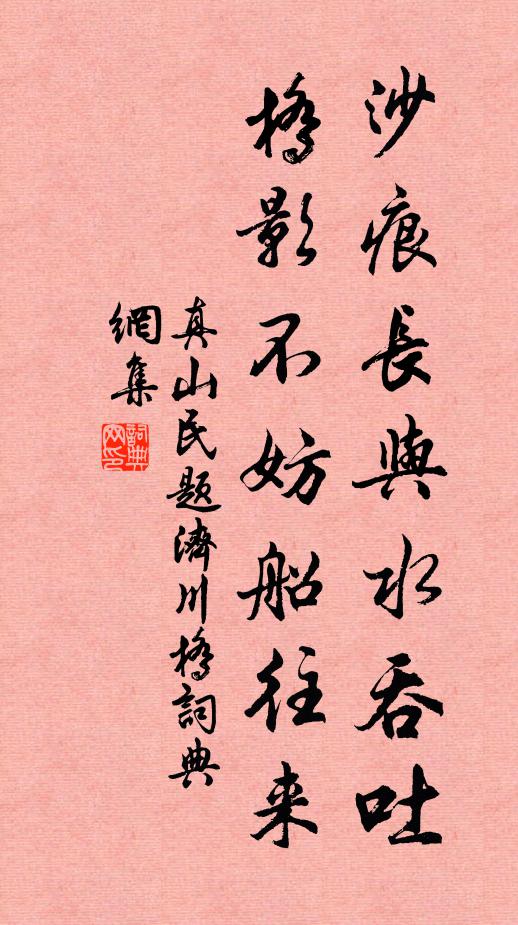 沙痕長與水吞吐
橋影不妨船往来
真山民題濟川橋詞典
網集
詞典
网印